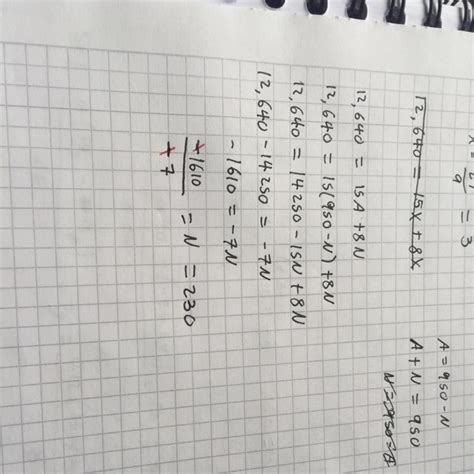 9 = 3
A = 950 - N
A + N = 950
12,640 = 15x + 8x
12,640 = 15A + 8N
12,640 = 15(950 - N) + 8N
12,640 = 14250 - 15N + 8N
12,640 - 14250 = -7N
-1610 = -7N
+1610
+7 = N = 230